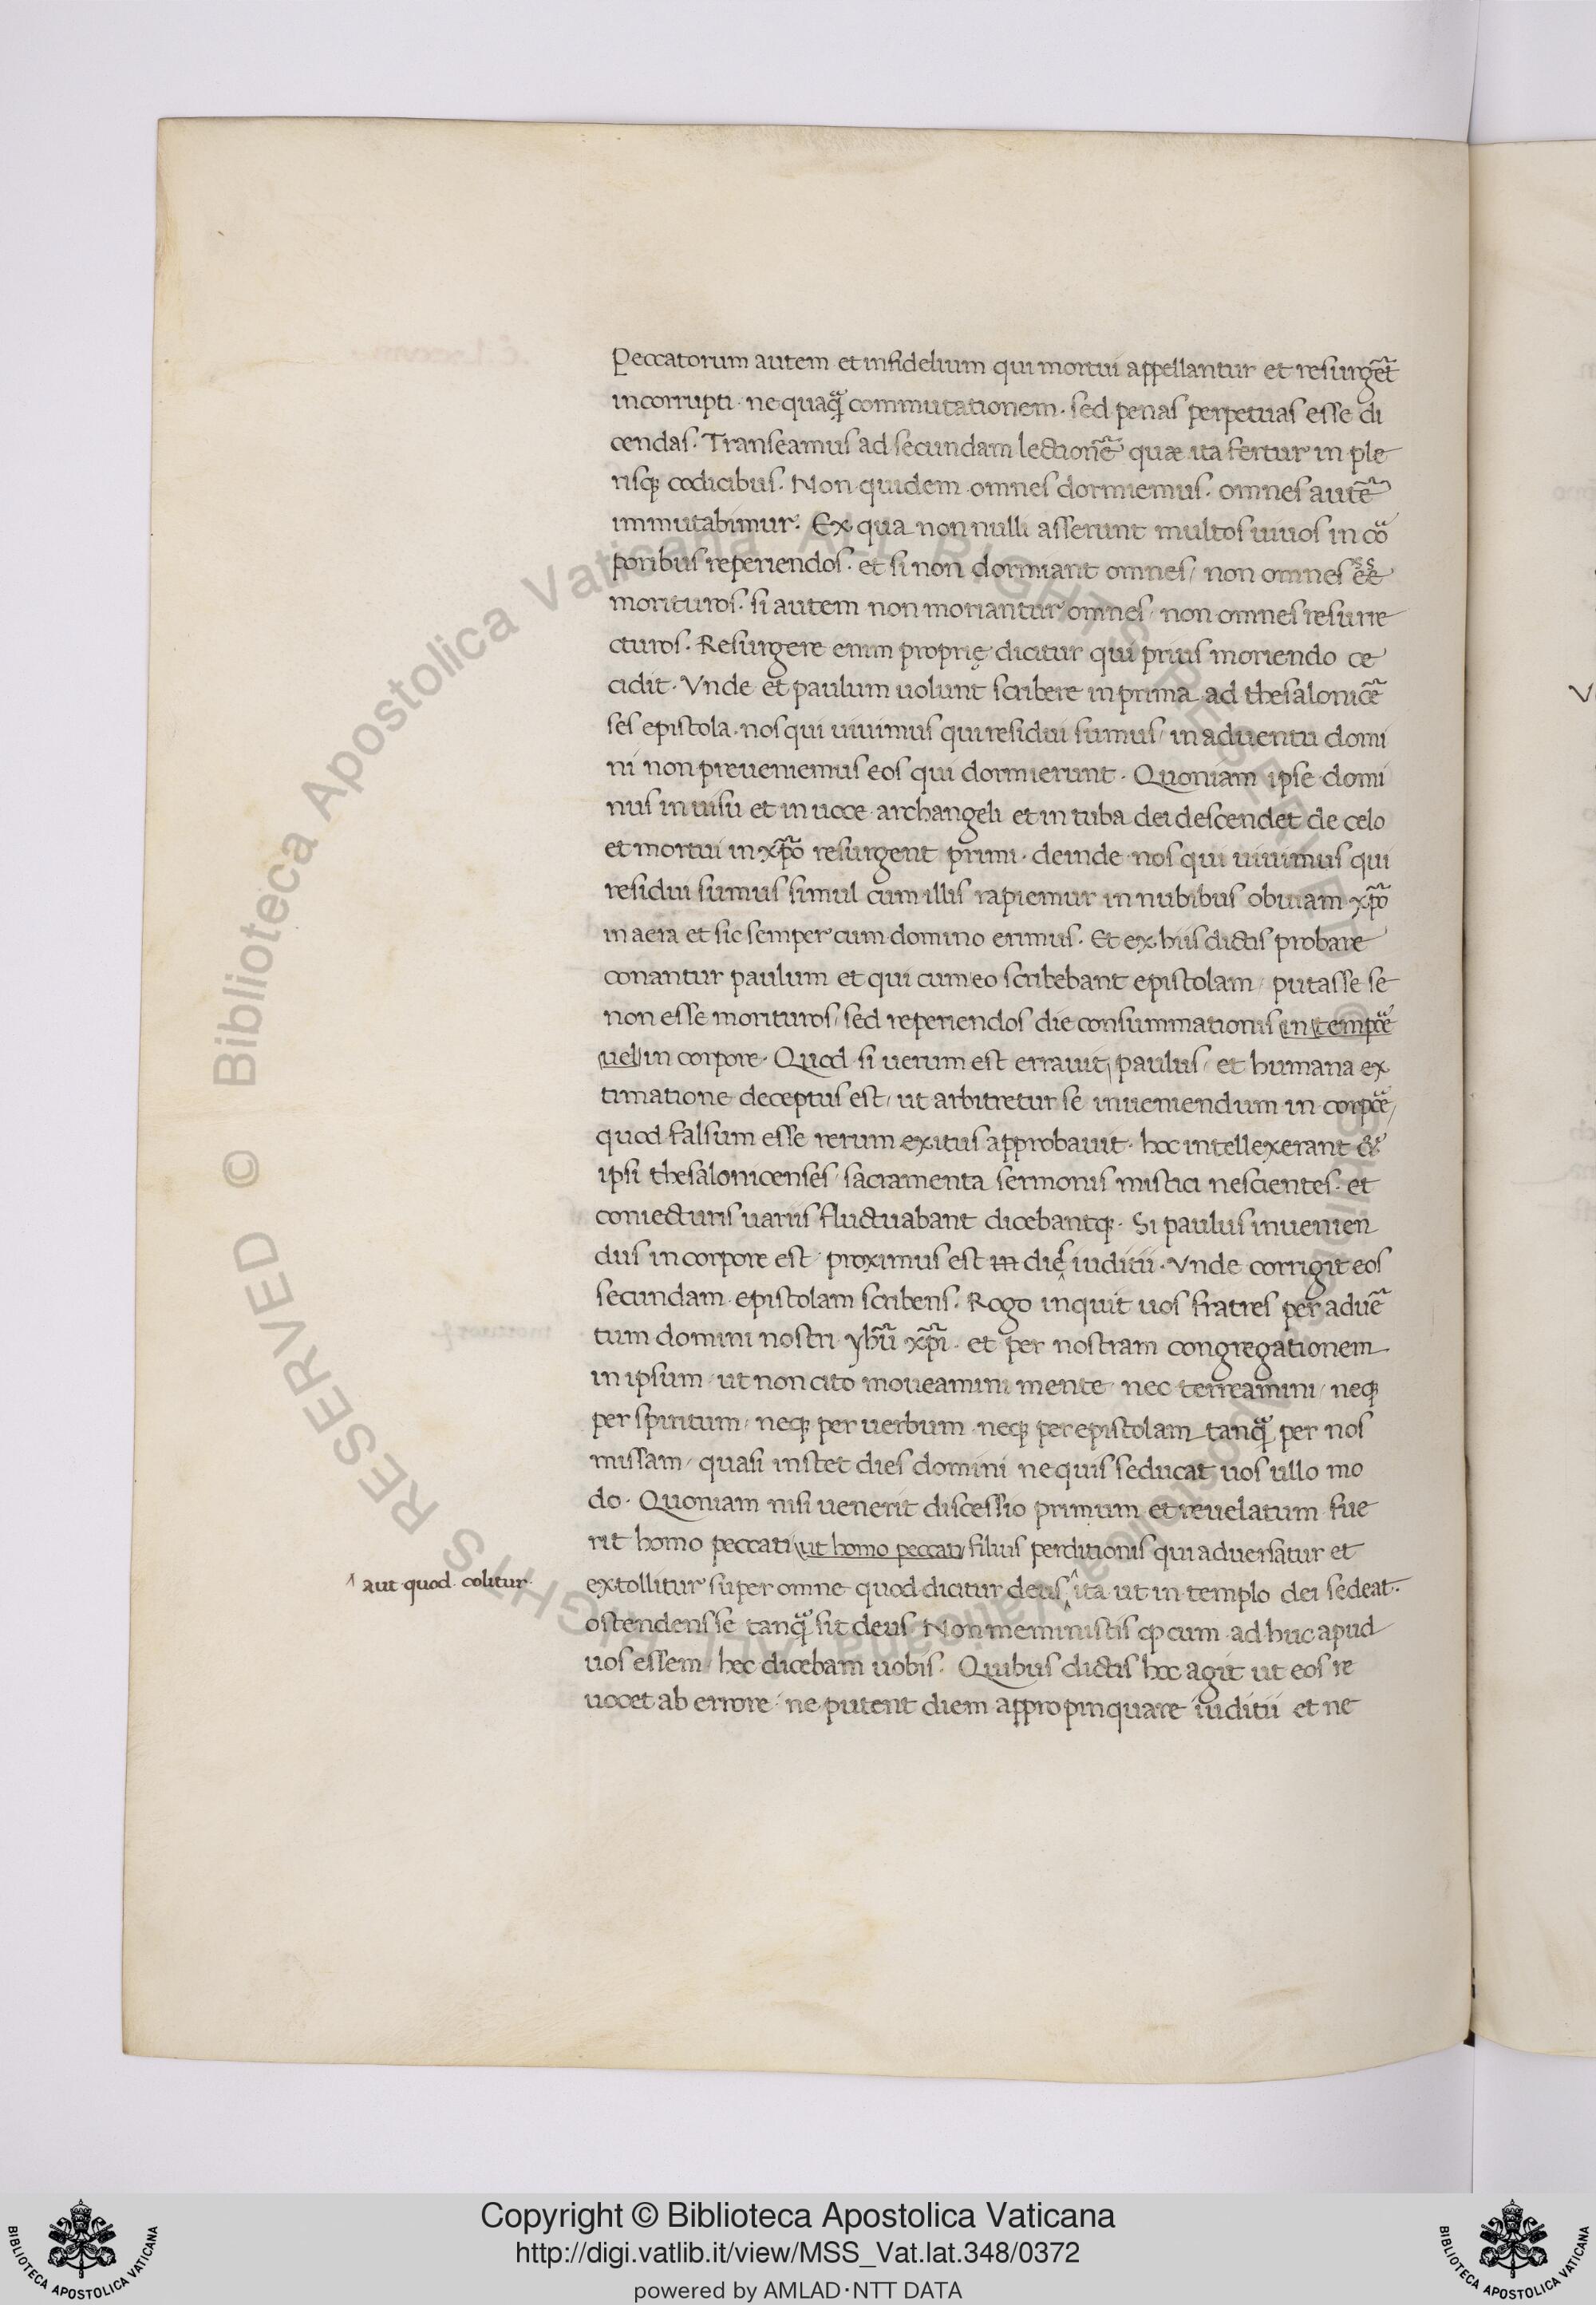 Peccatorum autem et infidelium qui mortui appellantur et resurgẽt
incorrupti · ne quaq̃ commutationem · sed penas perpetuas esse di
cendas · Transeamus ad secundam lectionẽ quæ ita fertur in ple
risq; codicibus · Non quidem omnes dormiemus · omnes autẽ
immutabimur · Ex qua non nulli asserunt multos uiuos in cor̃
poribus reperiendos · et si non dormiant omnes / non omnes eẽ
morituros · si autem non moriantur omnes / non omnes resurre
cturos · Resurgere enim proprię dicitur qui prius moriendo ce
cidit · Vnde et paulum uolunt scribere in prima ad thesalonicẽ
ses epistola · nos qui uiuimus qui residui sumus / in aduentu domi
ni non preueniemus eos qui dormierunt · Quoniam ipse domi
nus in uisu et in uoce archangeli et in tuba dei descendet de celo
et mortui in xp̃o resurgent primi · deinde nos qui uiuimus qui
residui sumus simul cum illis rapiemur in nubibus obuiam xp̃o
in aera et sic semper cum domino erimus · Et ex hiis dictis probare
conantur paulum et qui cum eo scribebant epistolam / putasse se
non esse morituros / sed reperiendos die consummationis in tempõe
uel in corpore · Quod si uerum est errauit paulus / et humana ex
timatione deceptus est / ut arbitretur se inueniendum in corpõe /
quod falsum esse rerum exitus approbauit · hoc intellexerant &
ipsi thesalonicenses / sacramenta sermonis mistici nescientes · et
coniecturis uariis fluctuabant dicebantq; · Si paulus inuenien
dus in corpore est · proximus est in dies iuditii · Vnde corrigit eos
secundam epistolam scribens · Rogo inquit uos fratres per aduẽ
tum domini nostri yhũ xp̃i · et per nostram congregationem
in ipsum / ut non cito moueamini mente / nec terreamini / neq;
per spiritum / neq; per uerbum neq; per epistolam tanq̃ per nos
missam / quasi instet dies domini ne quis seducat uos ullo mo
do · Quoniam nisi uenerit discessio primum et reuelatum fue
rit homo peccati ut homo peccati filius perditionis qui aduersatur et
^ aut quod colitur ·
extollitur super omne quod dicitur deus ^ ita ut in templo dei sedeat ·
ostendens se tanq̃ sit deus Non meministis ꝙ cum ad huc apud
uos essem / hec dicebam uobis · Quibus dictis hoc agit ut eos re
uocet ab errore · ne putent diem appropinquare iuditii et ne
BIBLIOTECA APOSTOLICA VATICANA
© Biblioteca Apostolica Vaticana ALL RIGHTS RESERVED
Copyright © Biblioteca Apostolica Vaticana
http://digi.vatlib.it/view/MSS_Vat.lat.348/0372
powered by AMLAD·NTT DATA
BIBLIOTECA APOSTOLICA VATICANA